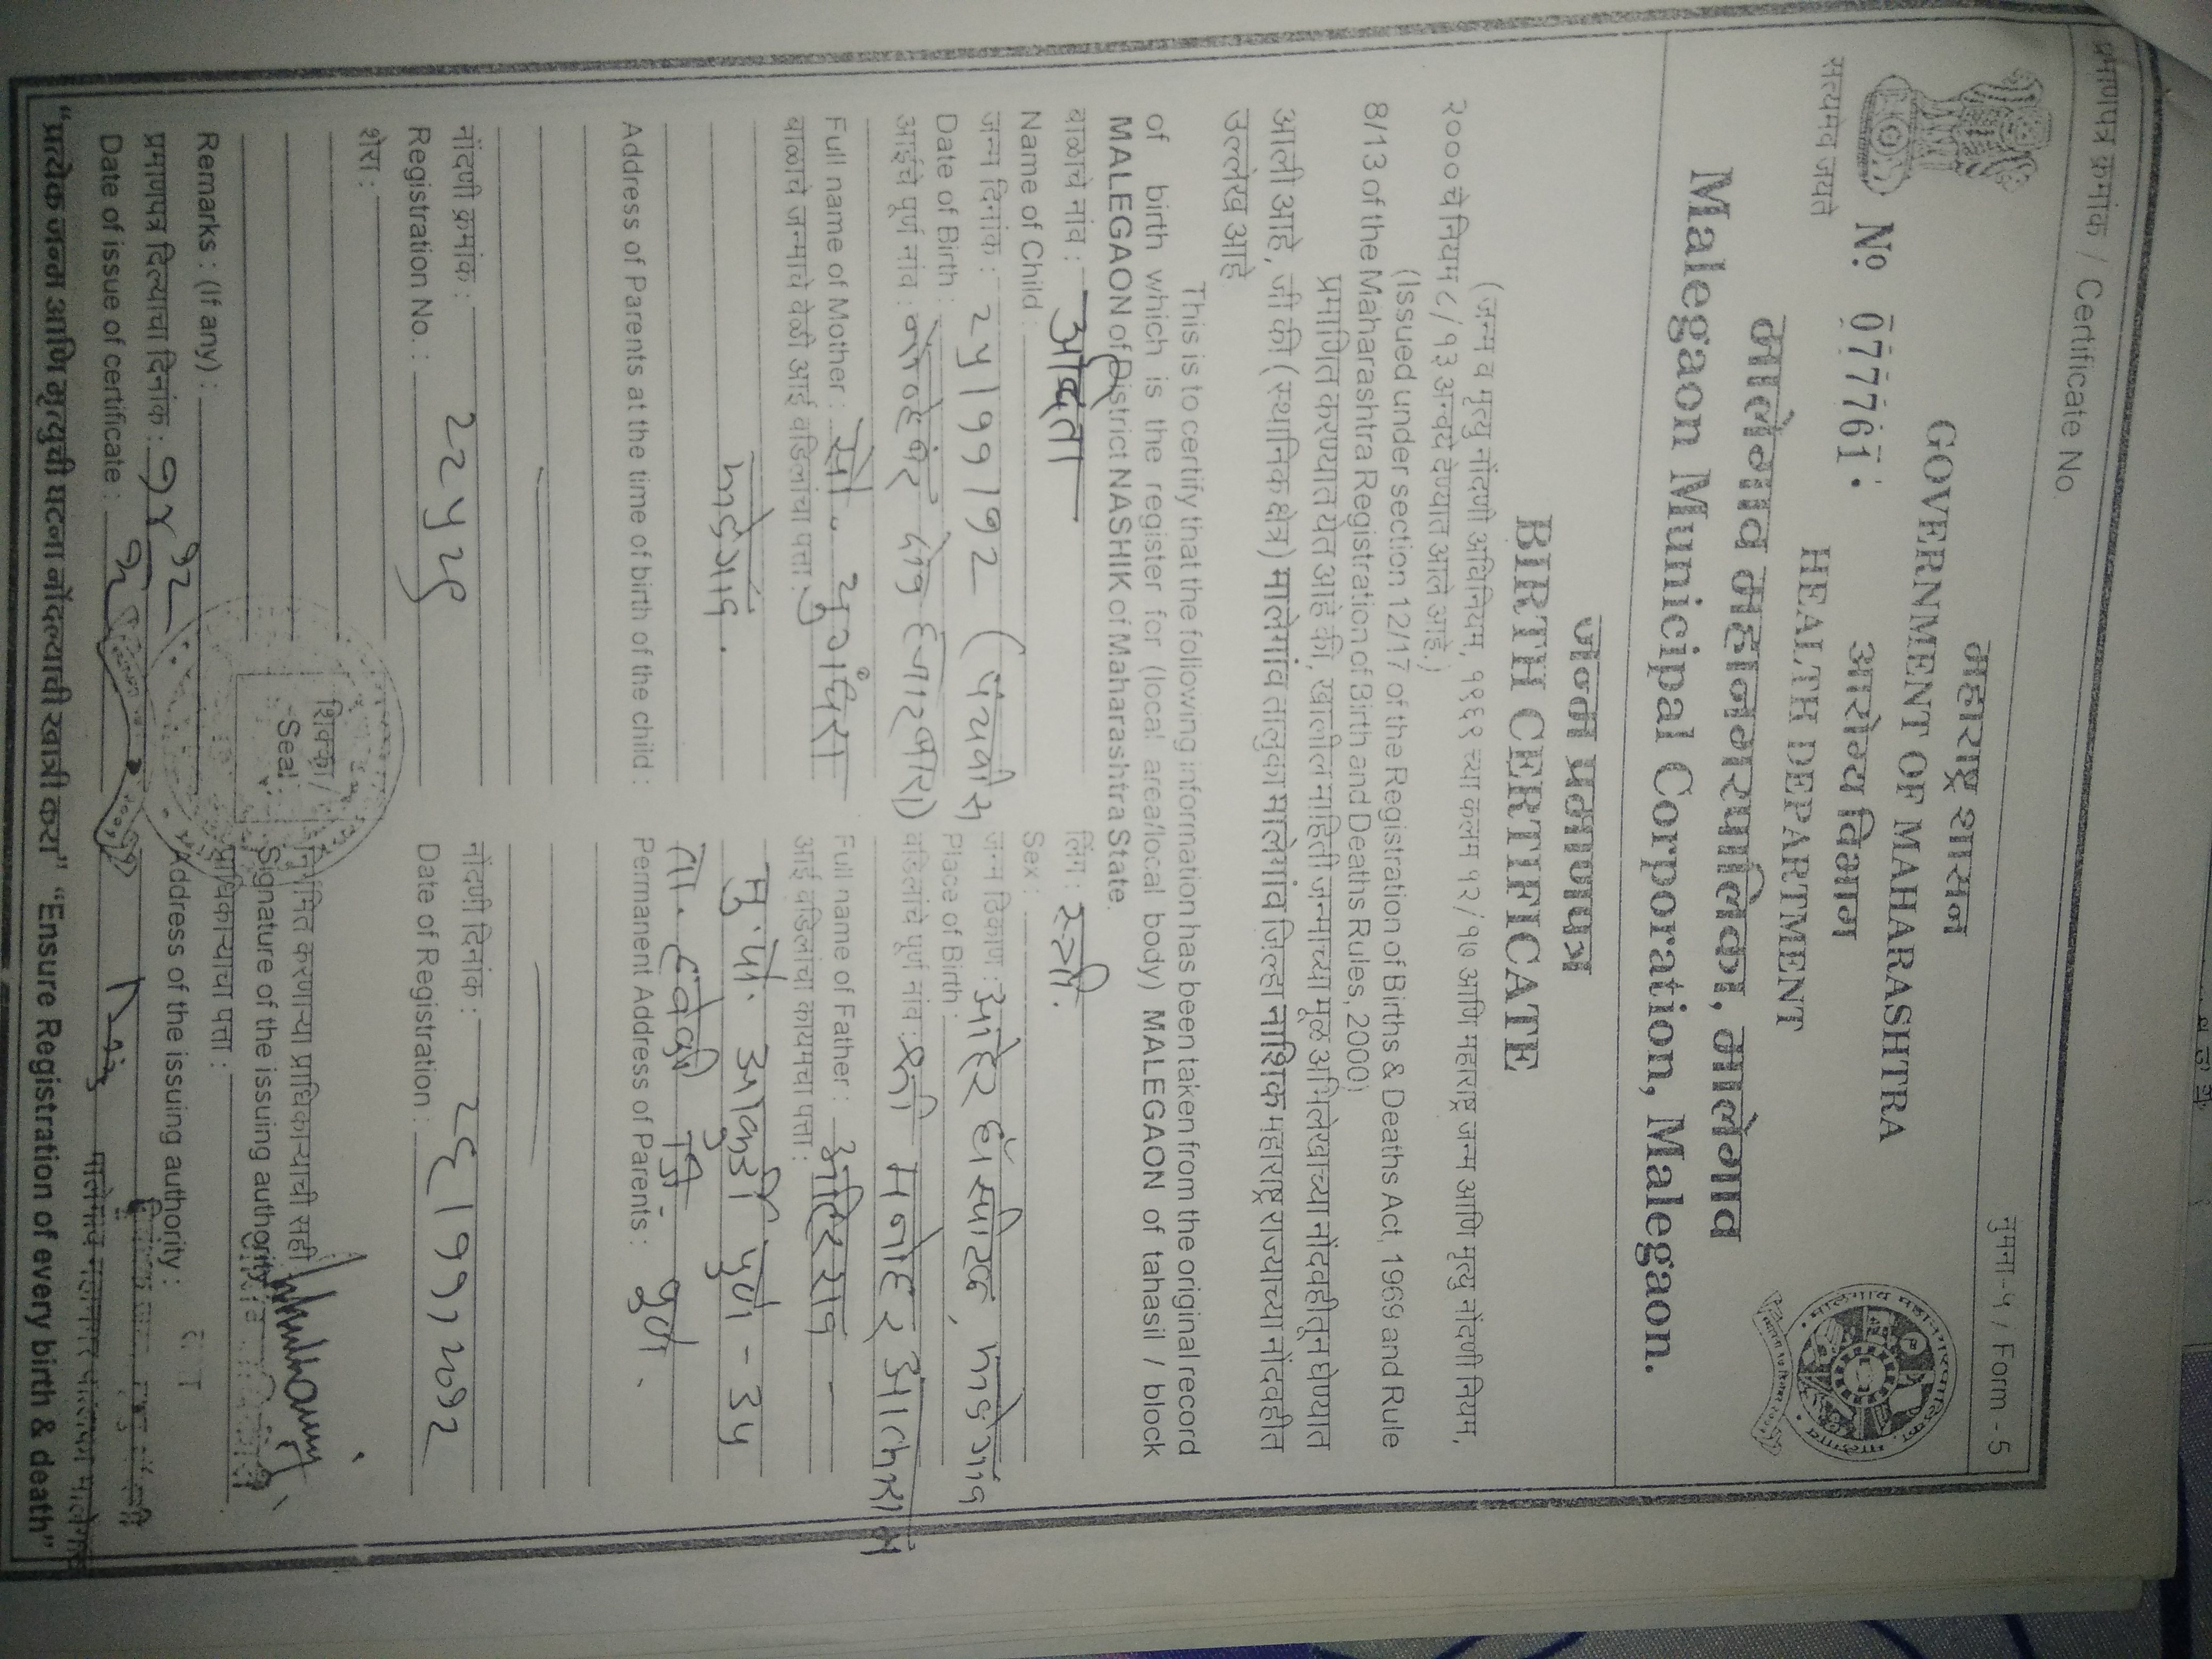 प्रमाणपत्र क्रमांक / Certificate No.
नुमना-५ / Form - 5
महाराष्ट्र शासन
GOVERNMENT OF MAHARASHTRA
आरोग्य विभाग
HEALTH DEPARTMENT
सत्यमेव जयते
Nº 077761
मालेगाव महानगरपालिका, मालेगाव
Malegaon Municipal Corporation, Malegaon.
जन्म प्रमाणपत्र
BIRTH CERTIFICATE
(जन्म व मृत्यु नोंदणी अधिनियम, १९६९ च्या कलम १२/१७ आणि महाराष्ट्र जन्म आणि मृत्यु नोंदणी नियम,
२००० चे नियम ८/१३ अन्वये देण्यात आले आहे.)
(Issued under section 12/17 of the Registration of Births & Deaths Act, 1969 and Rule
8/13 of the Maharashtra Registration of Birth and Deaths Rules, 2000)
प्रमाणित करण्यात येत आहे की, खालील माहिती जन्माच्या मूळ अभिलेखाच्या नोंदवहीतून घेण्यात
आली आहे, जी की (स्थानिक क्षेत्र) मालेगांव तालुका मालेगांव जिल्हा नाशिक महाराष्ट्र राज्याच्या नोंदवहीत
उल्लेख आहे
This is to certify that the following information has been taken from the original record
of birth which is the register for (local area/local body) MALEGAON of tahasil / block
MALEGAON of District NASHIK of Maharashtra State.
बाळाचे नांव : लिंग : स्त्री.
Name of Child : Sex :
जन्म दिनांक : २५।११।१२ (पंचवीस जन्म ठिकाण : आहेर हॉस्पीटल, मालेगांव
Date of Birth : Place of Birth :
आईचे पूर्ण नांव : नोव्हेंबर दोन हजार बारा) वडिलांचे पूर्ण नांव : श्री मनोहर आत्माराम
Full name of Mother : सौ. सुगंधरा Full name of Father : अहिरराव -
बाळाचे जन्माचे वेळी आई वडिलांचा पत्ता : आई वडिलांचा कायमचा पत्ता :
मालेगांव. मु.पो. आकुर्डी पुणे - ३५
ता. हवेली जि. पुणे.
Address of Parents at the time of birth of the child : Permanent Address of Parents :
नोंदणी क्रमांक : २२५९ नोंदणी दिनांक : २९।११।२०१२
Registration No. : Date of Registration :
शेरा :
Remarks : (If any) :
शिक्का / Seal
निर्गमित करणाऱ्या प्राधिकाऱ्याची सही
Signature of the issuing authority
प्रमाणपत्र दिल्याचा दिनांक : प्राधिकाऱ्याचा पत्ता :
Date of issue of certificate : Address of the issuing authority :
"प्रत्येक जन्म आणि मृत्युची घटना नोंदल्याची खात्री करा" "Ensure Registration of every birth & death"